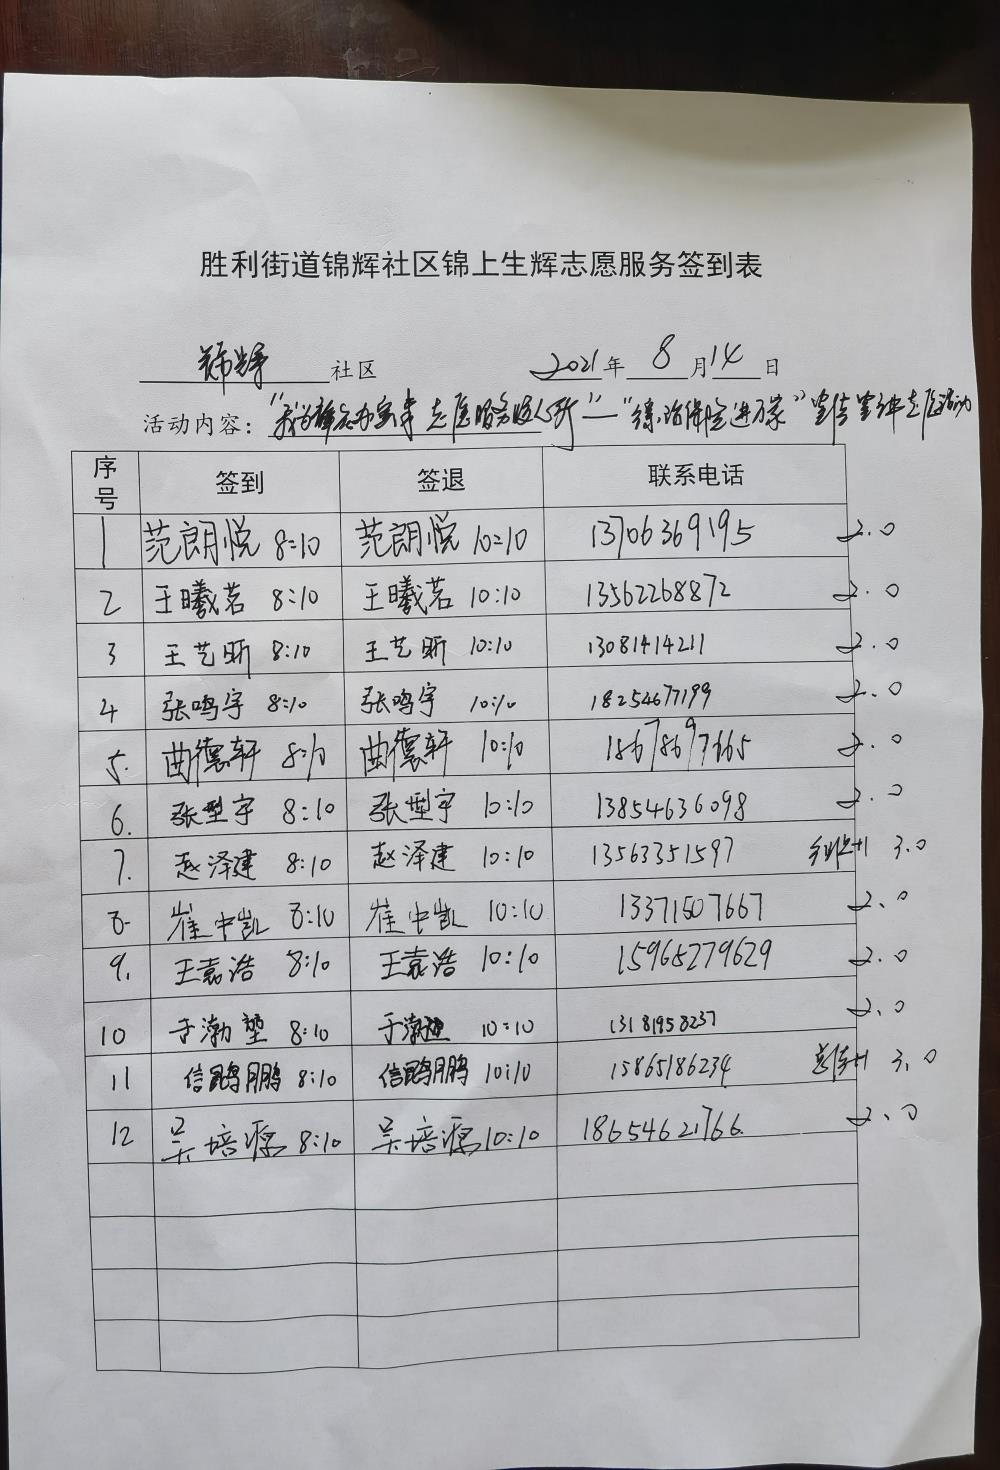 胜利街道锦辉社区锦上生辉志愿服务签到表
锦辉 社区 2021年 8月14日
活动内容：“我为群众办实事 志愿服务暖人心”—“法律进万家” 宣传志愿活动
序号 签到 签退 联系电话
1 范朗悦 8:10 范朗悦 10:10 13706369195 2.0
2 王曦茗 8:10 王曦茗 10:10 13562268872 2.0
3 王艺昕 8:10 王艺昕 10:10 13081414211 2.0
4 张鸣宇 8:10 张鸣宇 10:10 18254677199 2.0
5. 曲德轩 8:10 曲德轩 10:10 18678697665 2.0
6. 张型宇 8:10 张型宇 10:10 13854636098 2.0
7. 赵泽建 8:10 赵泽建 10:10 13563351597 +1 3.0
8. 崔中凯 8:10 崔中凯 10:10 13371507667 2.0
9. 王袁浩 8:10 王袁浩 10:10 15965279629 2.0
10 于渤堃 8:10 于渤堃 10:10 13181958237 2.0
11 信鹍鹏 8:10 信鹍鹏 10:10 15865186234 宣传+1 3.0
12 吴培源 8:10 吴培源 10:10 18654621766 2.0